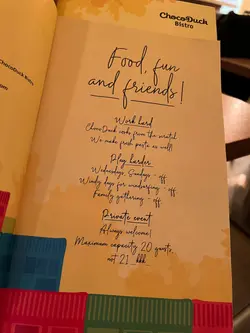 ChocoDuck
Bistro
ChocoDuck Bistro
.com
Food, fun
and friends!
Work hard
ChocoDuck works from the scratch!
We make fresh pasta as well!
Play harder
Wednesdays, Sundays - off
Windy days for windsurfing - off
Family gathering - off
Private event
Always welcome!
Maximum capacity 20 guests,
not 21